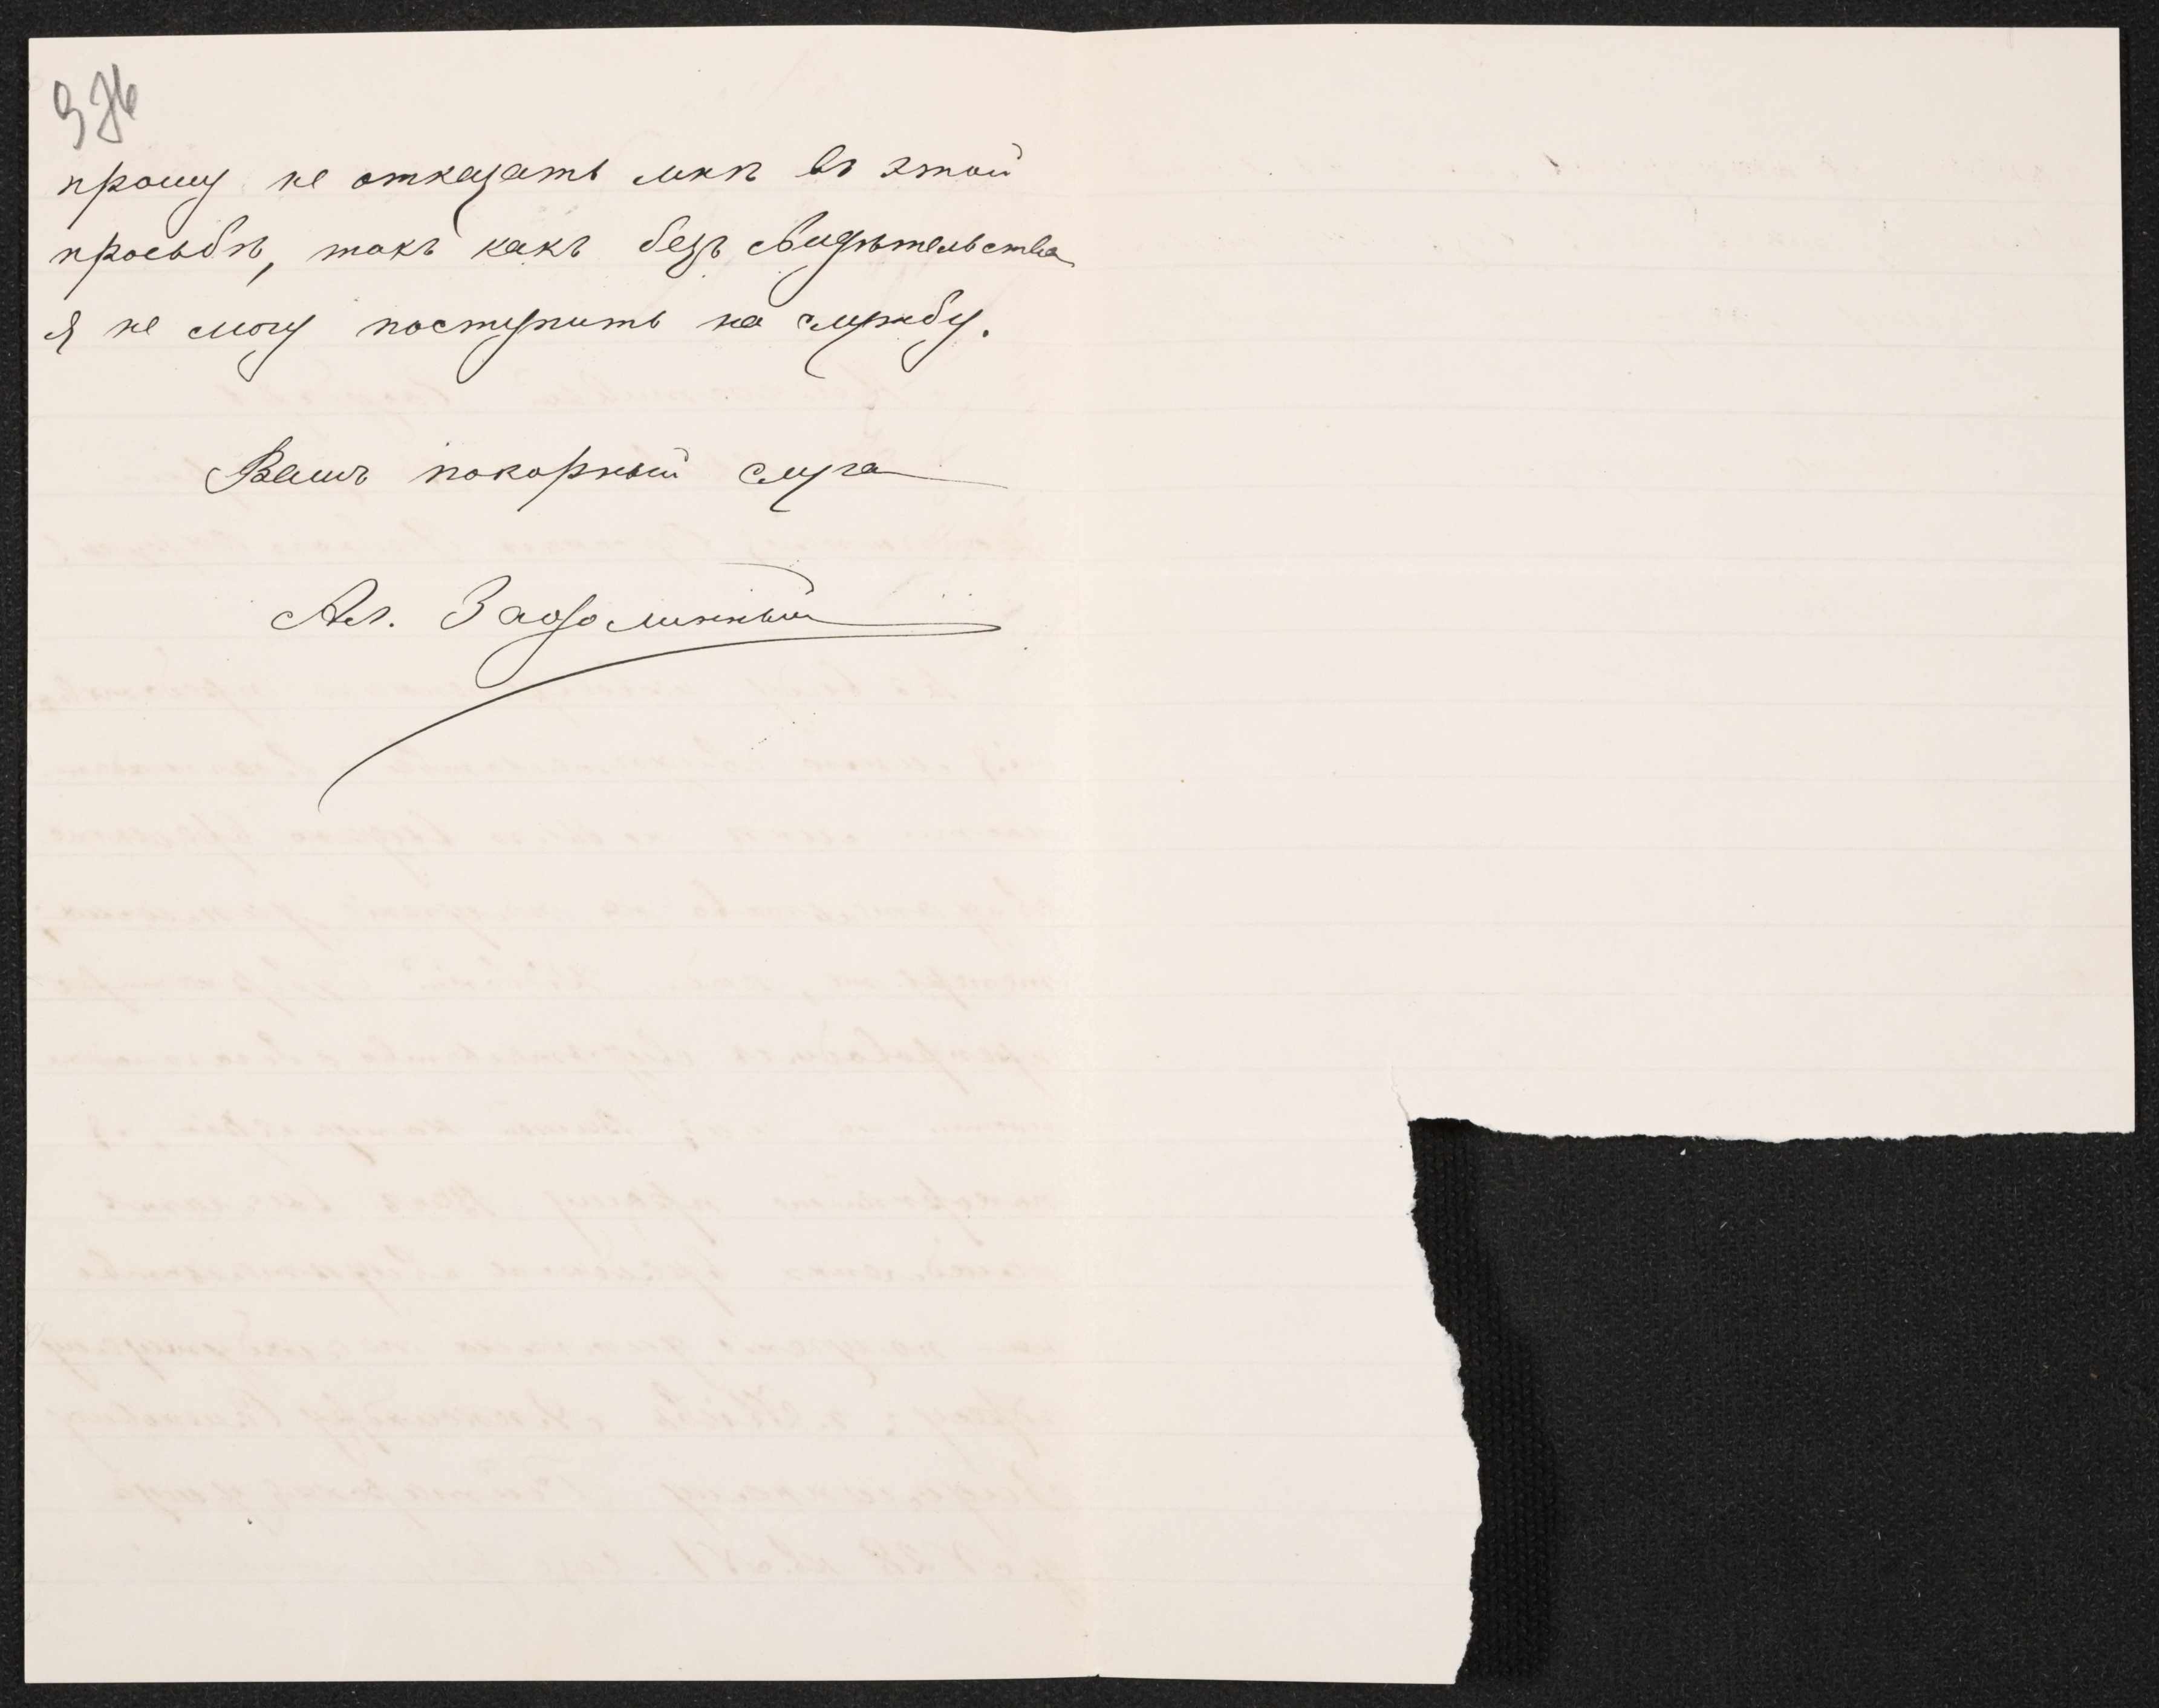 прошу не отказать мнѣ въ этой
просьбѣ, такъ какъ безъ свидѣтельства
я не могу поступить на службу.
Вашъ покорный слуга
Ал.